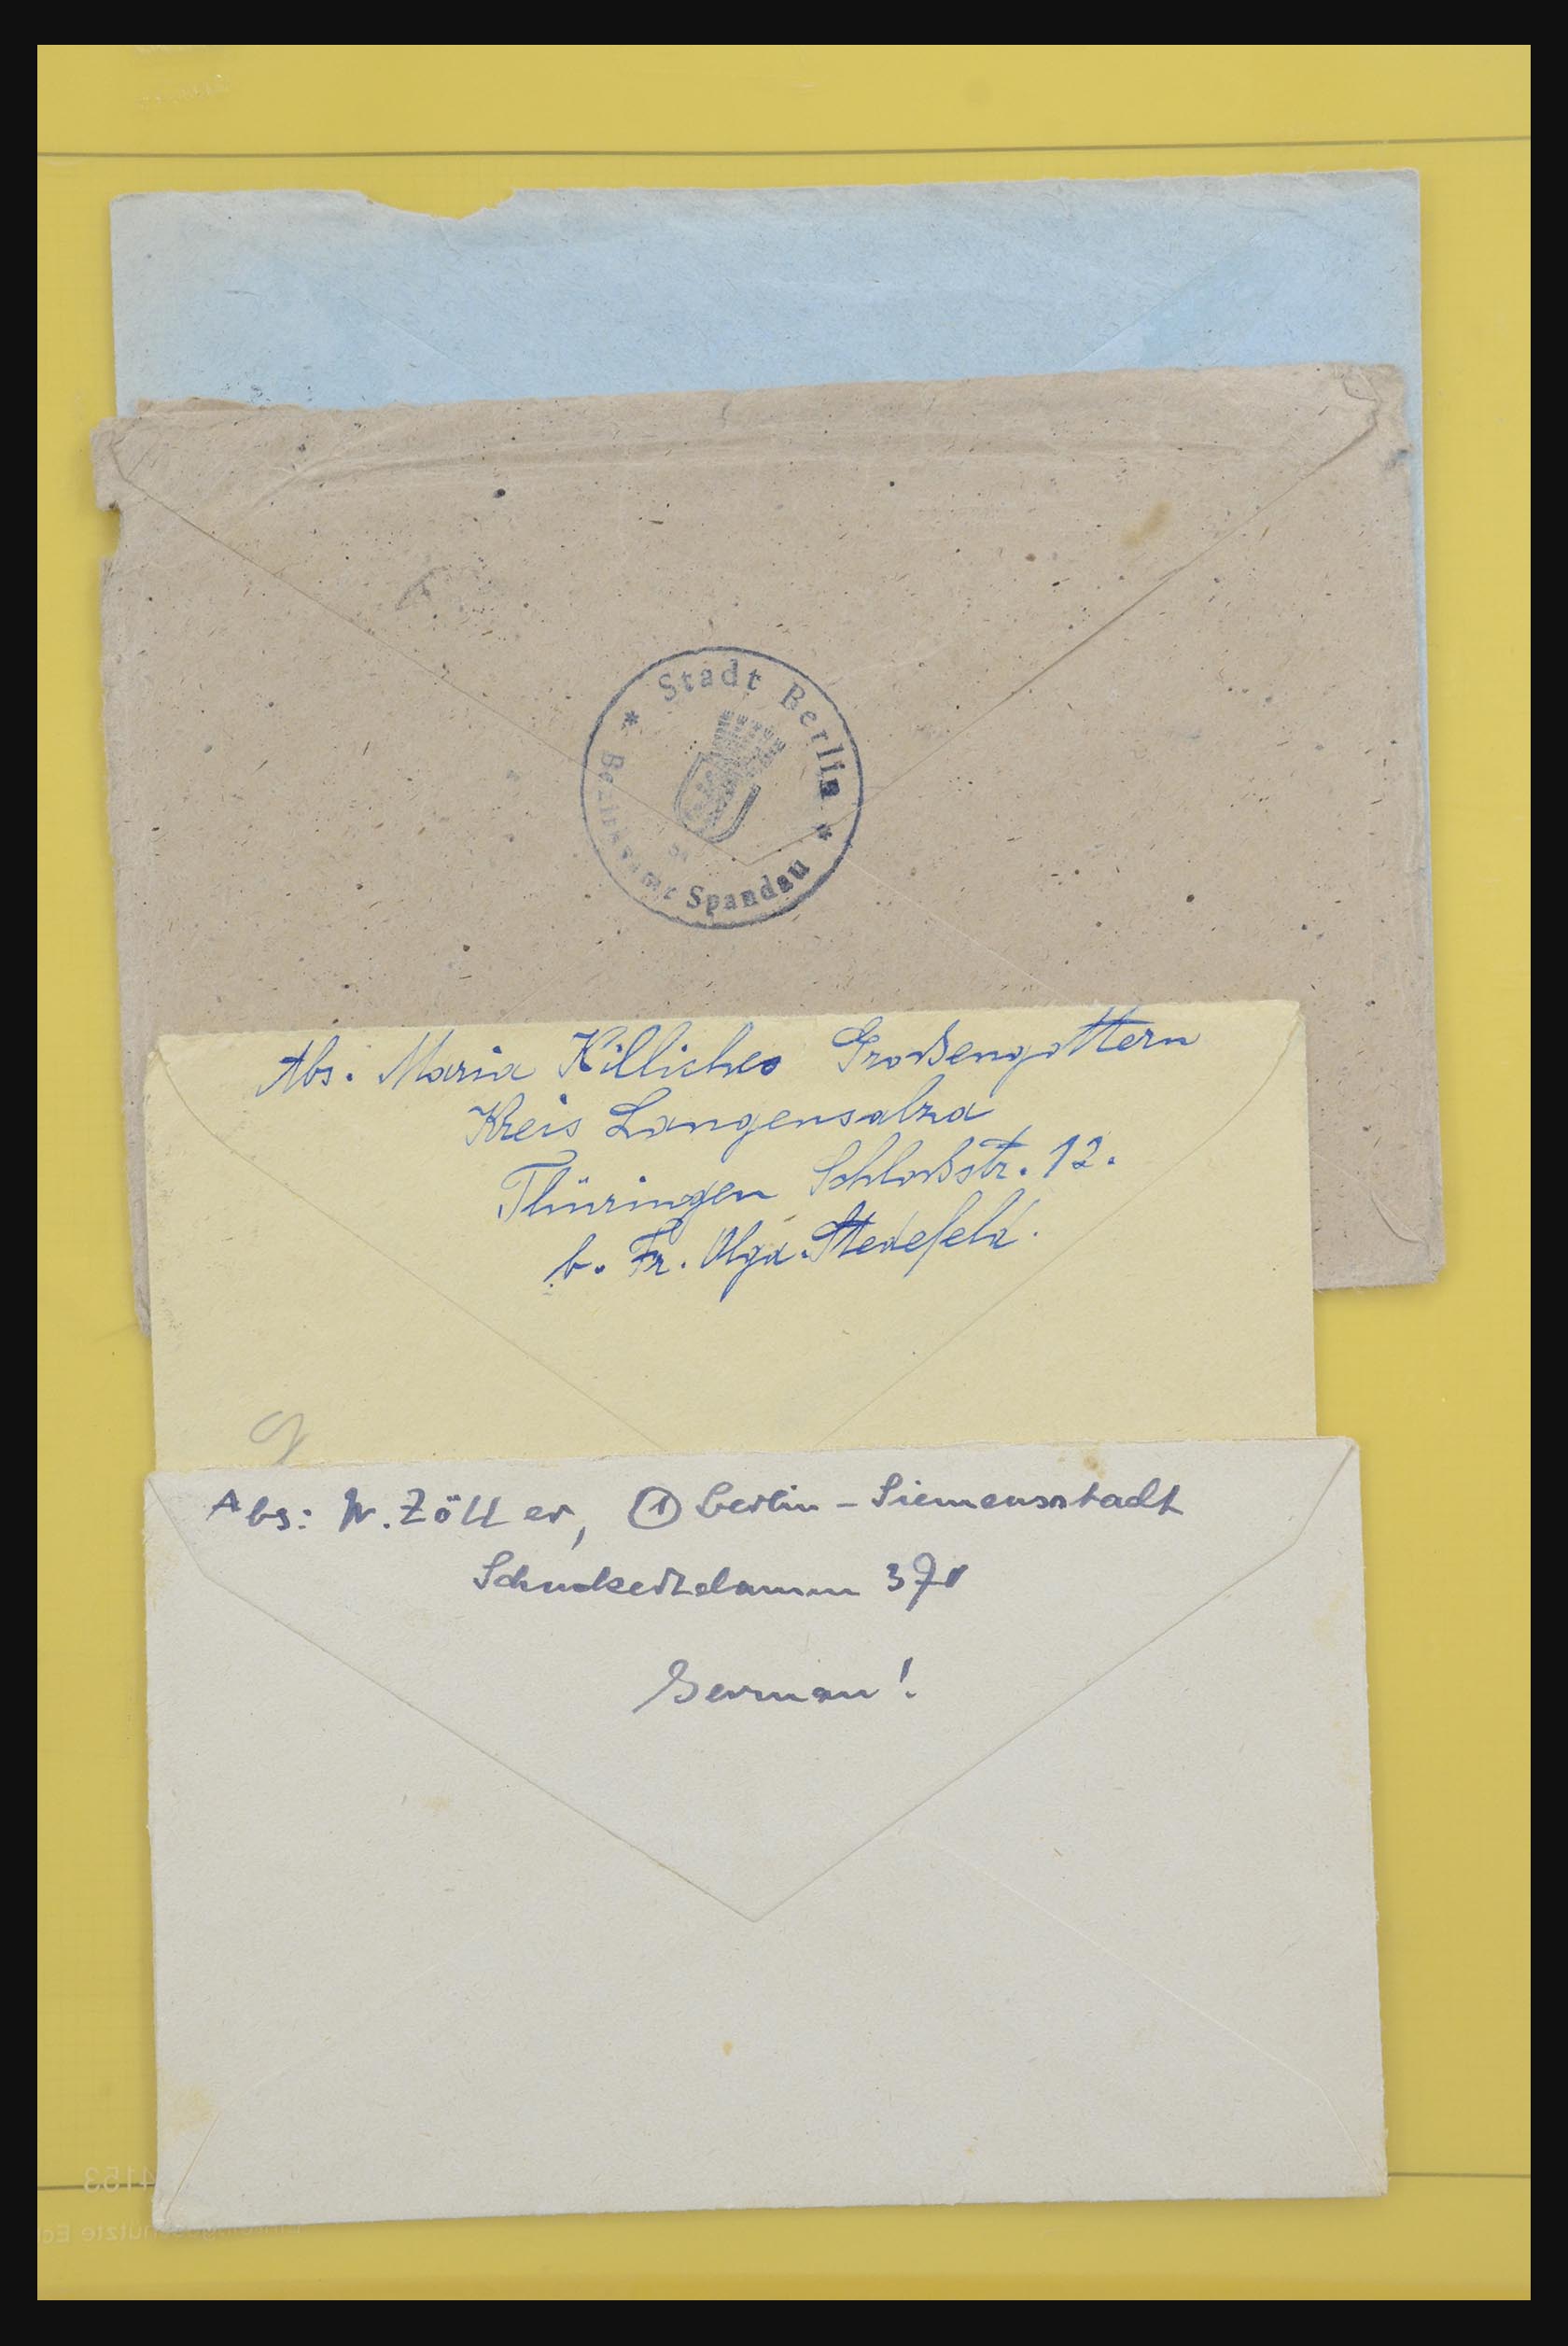 Stadt Berlin
Bezirksamt Spandau
Abs. Maria Killiches Großengottern
Kreis Langensalza
Thüringen Schloßstr. 12.
b. Fr. Olga Stedefeld.
Abs: W. Zöller, ① Berlin - Siemensstadt
Schuckertdamm
German!
4153